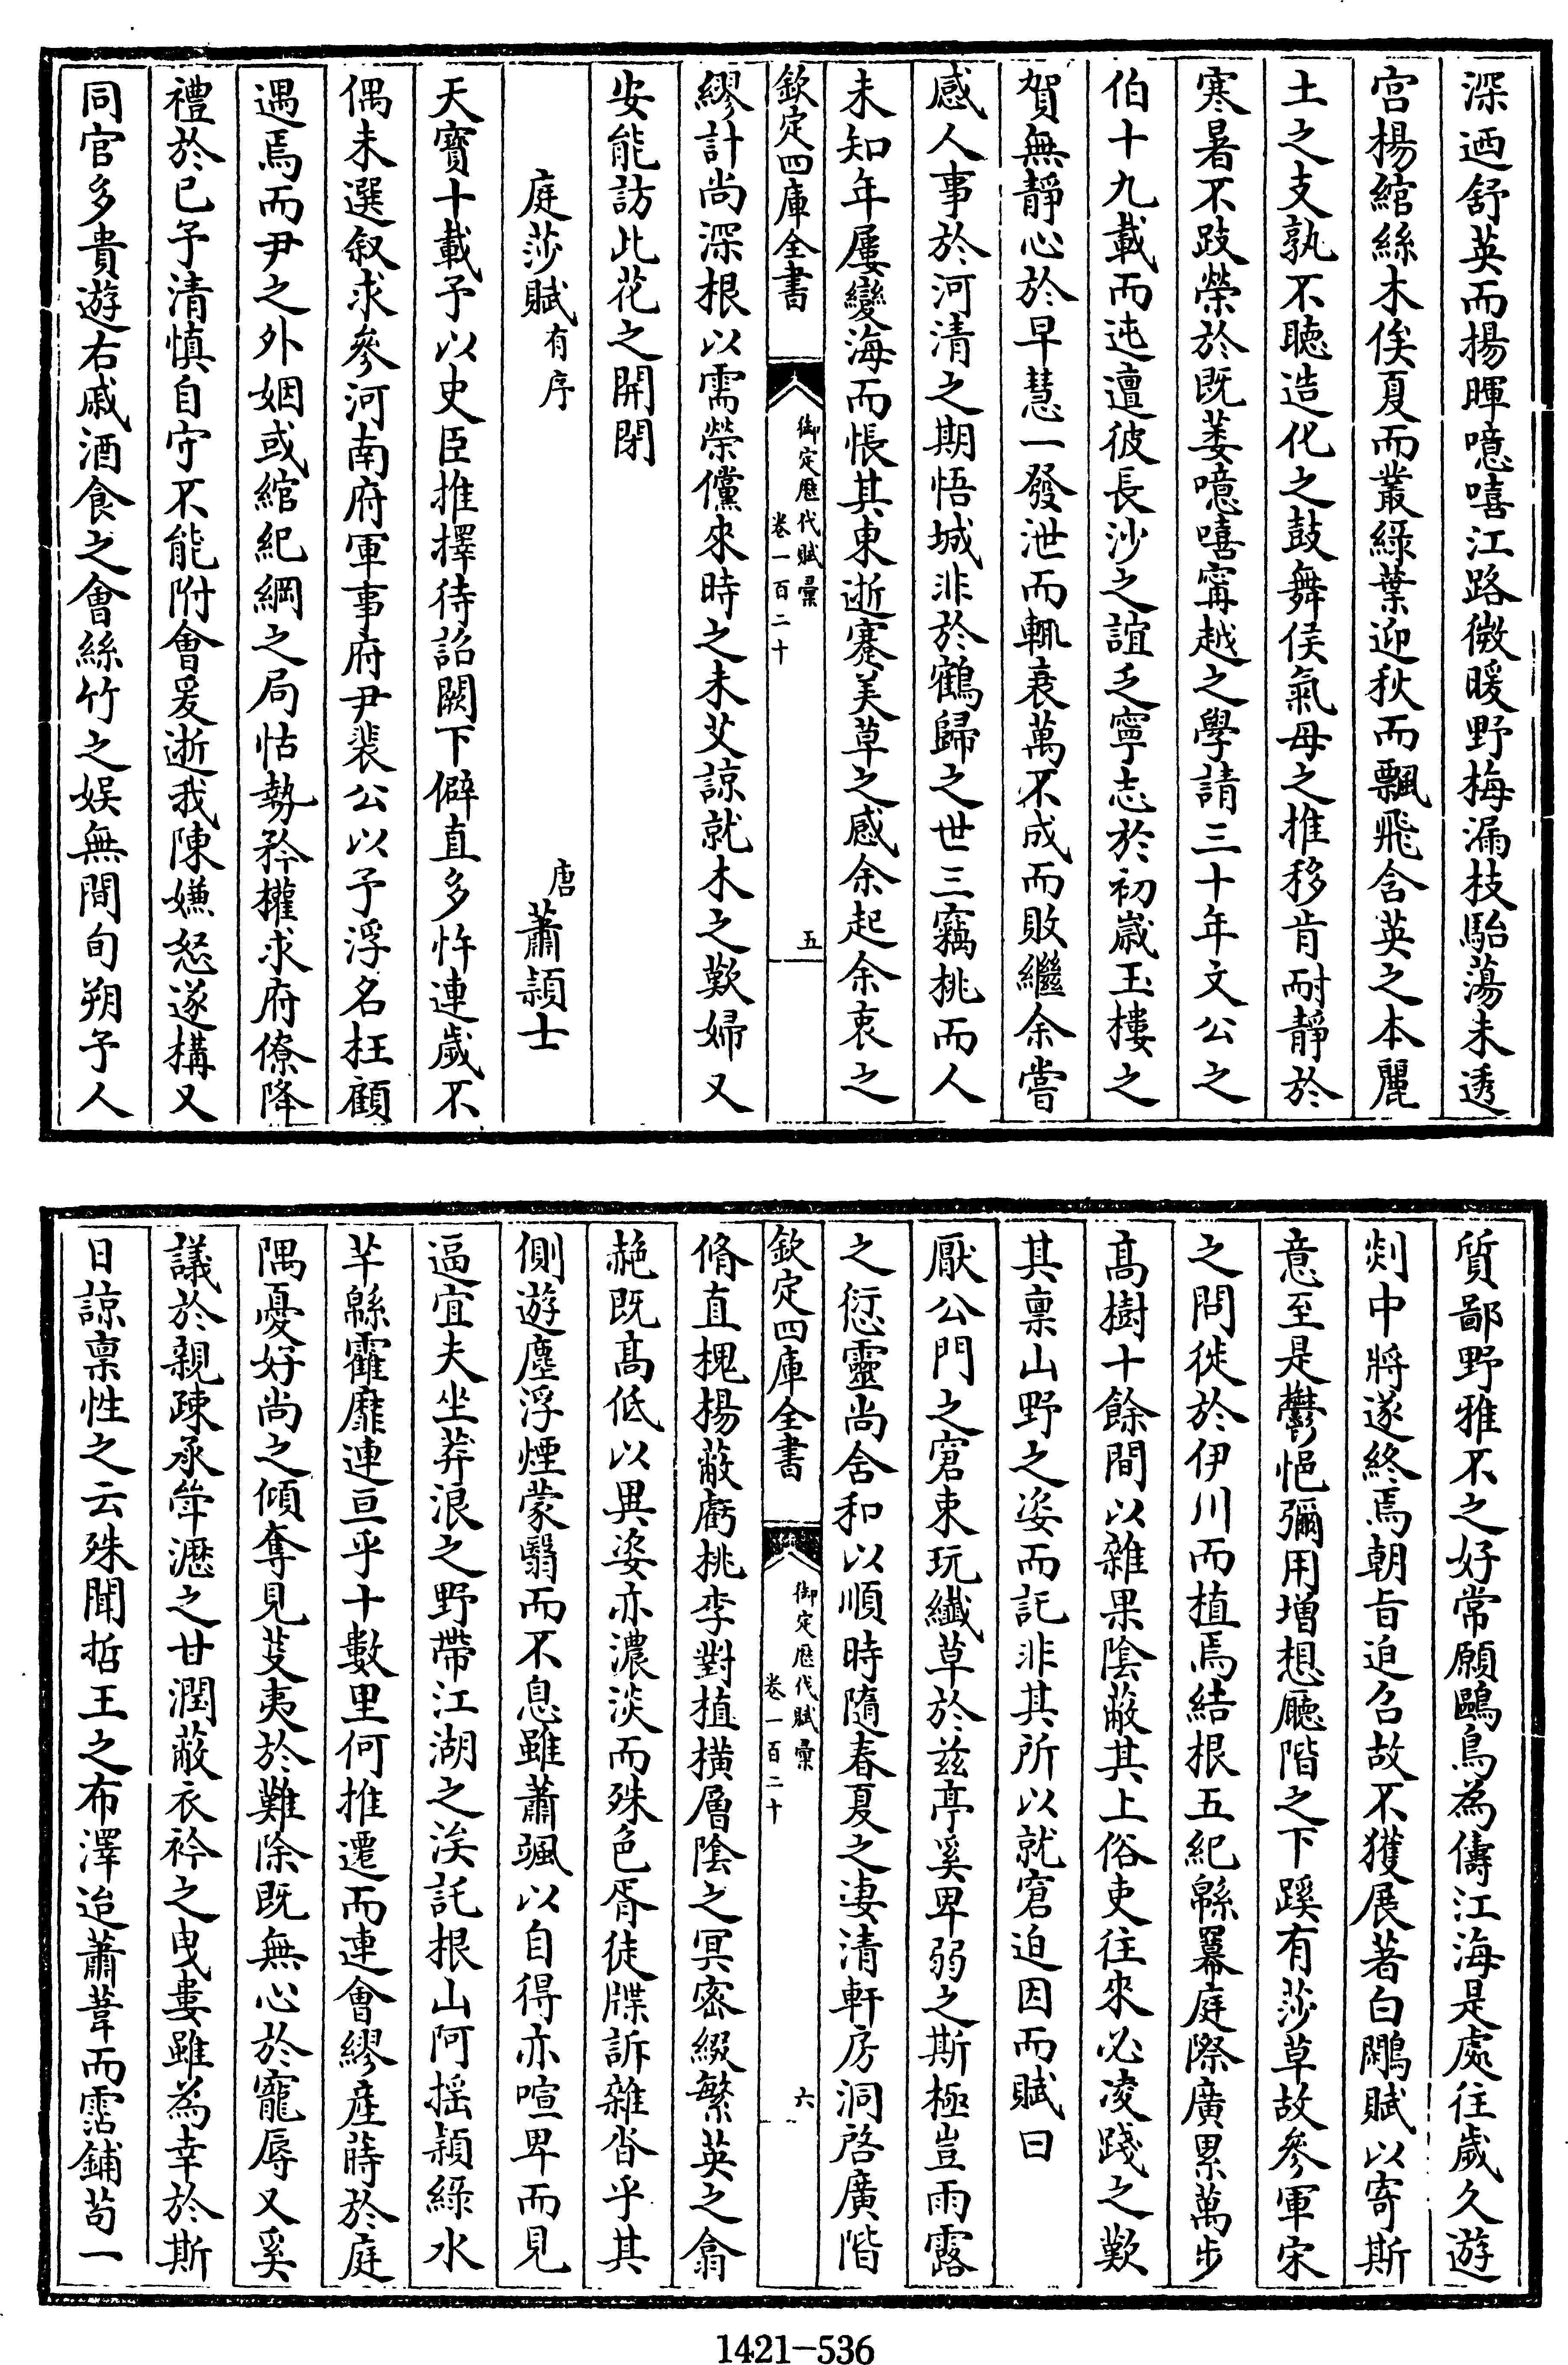 深迺舒英而揚暉噫嘻江路微暖野梅漏枝駘蕩未透
宫楊綰絲木俟夏而叢綠葉迎秋而飄飛含英之本麗
土之支孰不聽造化之鼓舞俟氣母之推移肯耐靜於
寒暑不跂榮於既萎噫嘻甯越之學請三十年文公之
伯十九載而迍邅彼長沙之誼乏寧志於初歳玉樓之
賀無靜心於早慧一發泄而輒衰萬不成而敗繼余嘗
感人事於河清之期悟城非於鶴歸之世三竊桃而人
未知年屢變海而悵其東逝蹇美草之感余起余衷之
欽定四庫全書
御定歴代賦彙
卷一百二十
五
繆計尚深根以需榮儻來時之未艾諒就木之歎婦又
安能訪此花之開閉
庭莎賦有序
唐蕭穎士
天寳十載予以史臣推擇待詔闕下僻直多忤連歲不
偶未選叙求參河南府軍事府尹裴公以予浮名枉顧
遇焉而尹之外姻或綰紀綱之局怙勢矜權求府僚降
禮於已予清慎自守不能附會爰逝我陳嫌怒遂構又
同官多貴遊右戚酒食之會絲竹之娱無間旬朔予人
質鄙野雅不之好常願鷗鳥為儔江海是處往歲久遊
剡中將遂終焉朝旨迫召故不獲展著白鷴賦以寄斯
意至是鬱悒彌用增想廳階之下蹊有莎草故參軍宋
之問徙於伊川而植焉結根五紀緜羃庭際廣累萬步
髙樹十餘間以雜果陰蔽其上俗吏往來必凌踐之歎
其稟山野之姿而託非其所以就窘迫因而賦曰
厭公門之窘束玩纎草於兹亭奚卑弱之斯極豈雨露
之愆靈尚含和以順時隨春夏之凄清軒房洞啓廣階
欽定四庫全書
御定歴代賦彙
卷一百二十
六
脩直槐楊蔽虧桃李對植横層陰之冥密綴繁英之翕
赩既髙低以異姿亦濃淡而殊色胥徒牒訴雜沓乎其
側遊塵浮煙蒙翳而不息雖蕭颯以自得亦喧卑而見
逼宜夫坐莽浪之野帶江湖之涘託根山阿揺穎綠水
芊緜霍靡連亘乎十數里何推遷而連會繆産蒔於庭
隅憂好尚之傾奪見芟夷於難除既無心於寵辱又奚
議於親疎承斝瀝之甘潤蔽衣衿之曳婁雖為幸於斯
日諒稟性之云殊聞哲王之布澤迨蕭葦而霑鋪苟一
1421-536